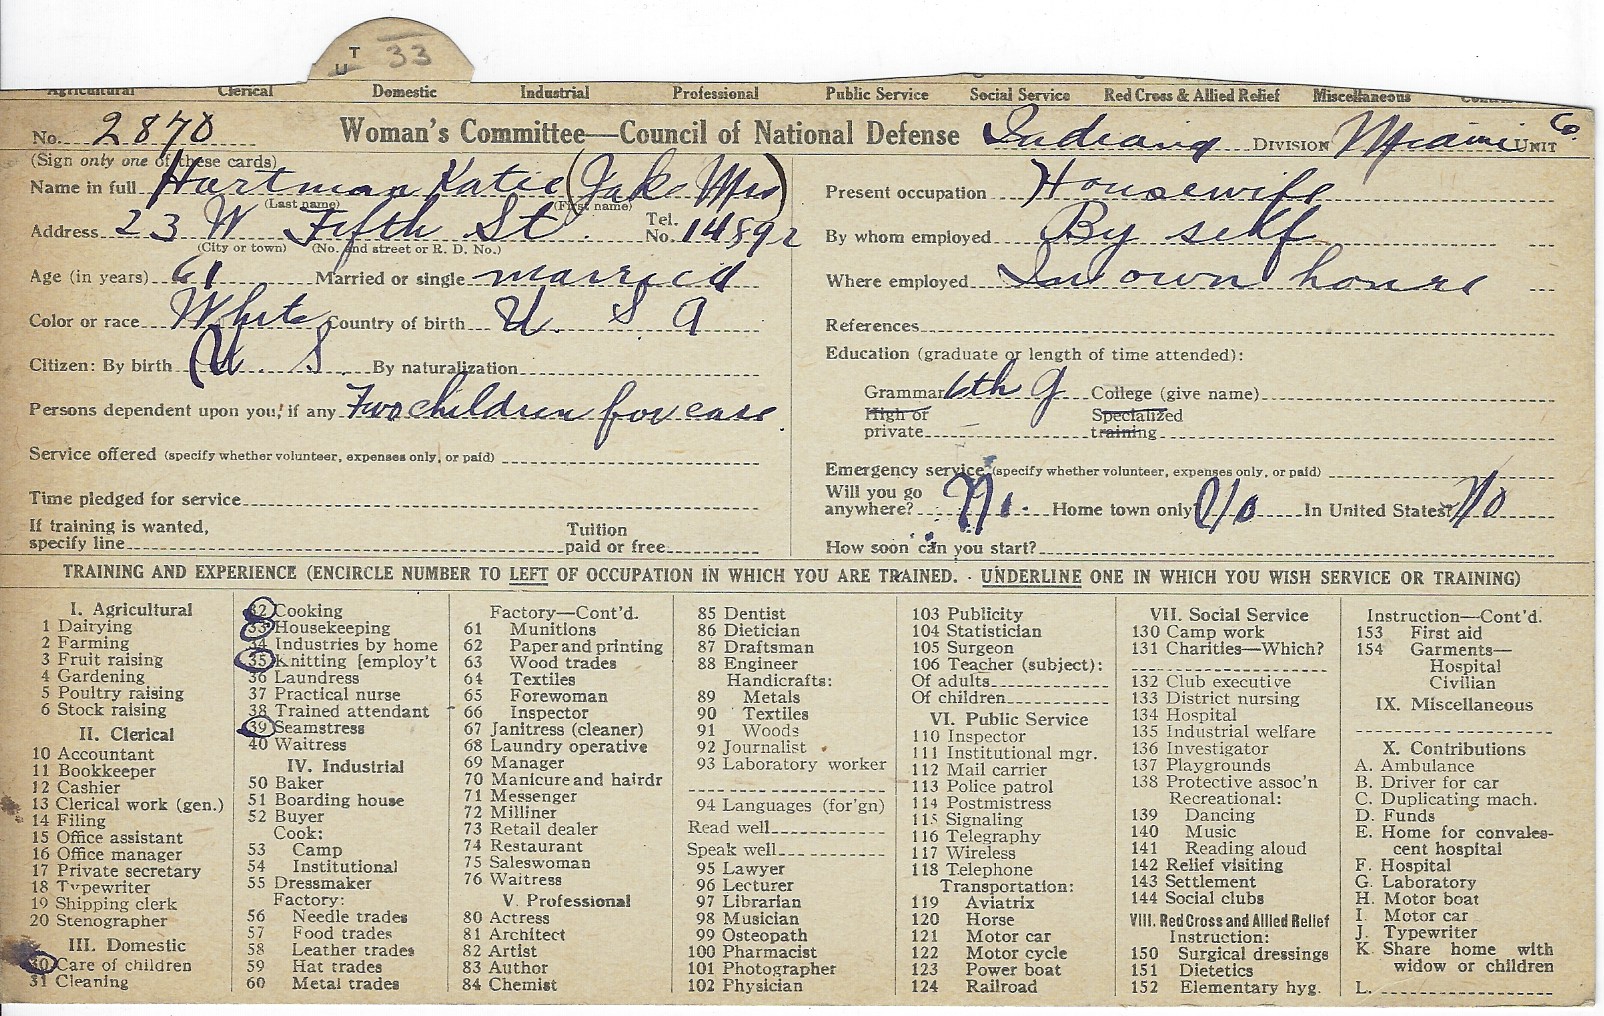 T
U 33
Agricultural Clerical Domestic Industrial Professional Public Service Social Service Red Cross & Allied Relief Miscellaneous
No. 2870 Woman's Committee—Council of National Defense Indiana DIVISION Miami Co. UNIT
(Sign only one of these cards)
Name in full Hartman Katie (Jake Mrs)
(Last name) (First name)
Address 23 W Fifth St. Tel. No. 14892
(City or town) (No. and street or R. D. No.)
Age (in years) 61 Married or single married
Color or race White Country of birth U. S A
Citizen: By birth U. S. By naturalization
Persons dependent upon you, if any Two children for care.
Service offered (specify whether volunteer, expenses only, or paid)
Time pledged for service
If training is wanted,
specify line Tuition paid or free
Present occupation Housewife
By whom employed By self
Where employed In own house
References
Education (graduate or length of time attended):
Grammar 6th g College (give name)
High or private Specialized training
Emergency service (specify whether volunteer, expenses only, or paid)
Will you go anywhere? No. Home town only No In United States? No
How soon can you start?
TRAINING AND EXPERIENCE (ENCIRCLE NUMBER TO LEFT OF OCCUPATION IN WHICH YOU ARE TRAINED. UNDERLINE ONE IN WHICH YOU WISH SERVICE OR TRAINING)
I. Agricultural
1 Dairying
2 Farming
3 Fruit raising
4 Gardening
5 Poultry raising
6 Stock raising
II. Clerical
10 Accountant
11 Bookkeeper
12 Cashier
13 Clerical work (gen.)
14 Filing
15 Office assistant
16 Office manager
17 Private secretary
18 Typewriter
19 Shipping clerk
20 Stenographer
III. Domestic
30 Care of children
31 Cleaning
32 Cooking
33 Housekeeping
34 Industries by home
35 Knitting [employ't
36 Laundress
37 Practical nurse
38 Trained attendant
39 Seamstress
40 Waitress
IV. Industrial
50 Baker
51 Boarding house
52 Buyer
Cook:
53 Camp
54 Institutional
55 Dressmaker
Factory:
56 Needle trades
57 Food trades
58 Leather trades
59 Hat trades
60 Metal trades
Factory—Cont'd.
61 Munitions
62 Paper and printing
63 Wood trades
64 Textiles
65 Forewoman
66 Inspector
67 Janitress (cleaner)
68 Laundry operative
69 Manager
70 Manicure and hairdr
71 Messenger
72 Milliner
73 Retail dealer
74 Restaurant
75 Saleswoman
76 Waitress
V. Professional
80 Actress
81 Architect
82 Artist
83 Author
84 Chemist
85 Dentist
86 Dietician
87 Draftsman
88 Engineer
Handicrafts:
89 Metals
90 Textiles
91 Woods
92 Journalist
93 Laboratory worker
94 Languages (for'gn)
Read well
Speak well
95 Lawyer
96 Lecturer
97 Librarian
98 Musician
99 Osteopath
100 Pharmacist
101 Photographer
102 Physician
103 Publicity
104 Statistician
105 Surgeon
106 Teacher (subject):
Of adults
Of children
VI. Public Service
110 Inspector
111 Institutional mgr.
112 Mail carrier
113 Police patrol
114 Postmistress
115 Signaling
116 Telegraphy
117 Wireless
118 Telephone
Transportation:
119 Aviatrix
120 Horse
121 Motor car
122 Motor cycle
123 Power boat
124 Railroad
VII. Social Service
130 Camp work
131 Charities—Which?
132 Club executive
133 District nursing
134 Hospital
135 Industrial welfare
136 Investigator
137 Playgrounds
138 Protective assoc'n
Recreational:
139 Dancing
140 Music
141 Reading aloud
142 Relief visiting
143 Settlement
144 Social clubs
VIII. Red Cross and Allied Relief
Instruction:
150 Surgical dressings
151 Dietetics
152 Elementary hyg.
Instruction—Cont'd.
153 First aid
154 Garments—
Hospital
Civilian
IX. Miscellaneous
X. Contributions
A. Ambulance
B. Driver for car
C. Duplicating mach.
D. Funds
E. Home for convales-
cent hospital
F. Hospital
G. Laboratory
H. Motor boat
I. Motor car
J. Typewriter
K. Share home with
widow or children
L.